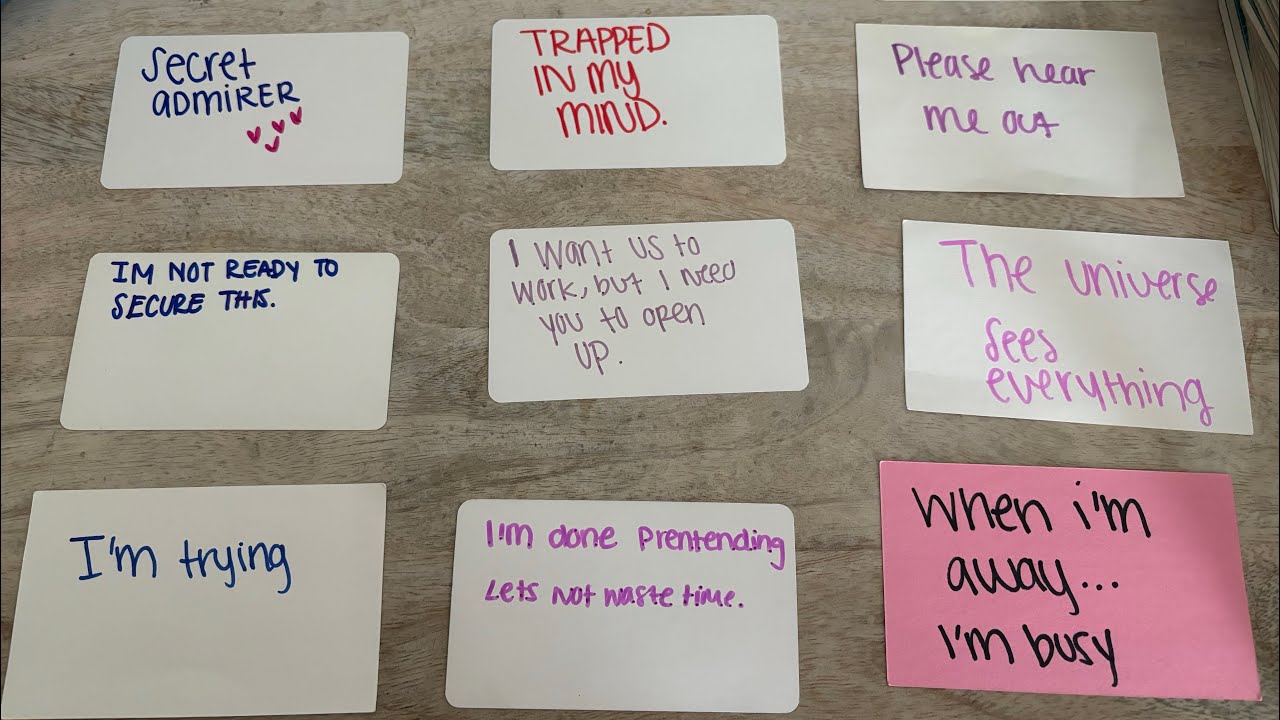 Secret
ADMIRER
TRAPPED
IN MY
MIND.
Please hear
me out
IM NOT READY TO
SECURE THIS.
I want us to
work, but I need
you to open
up.
The universe
sees
everything
I'm trying
I'm done Prentending
Lets not waste time.
When i'm
away...
I'm busy